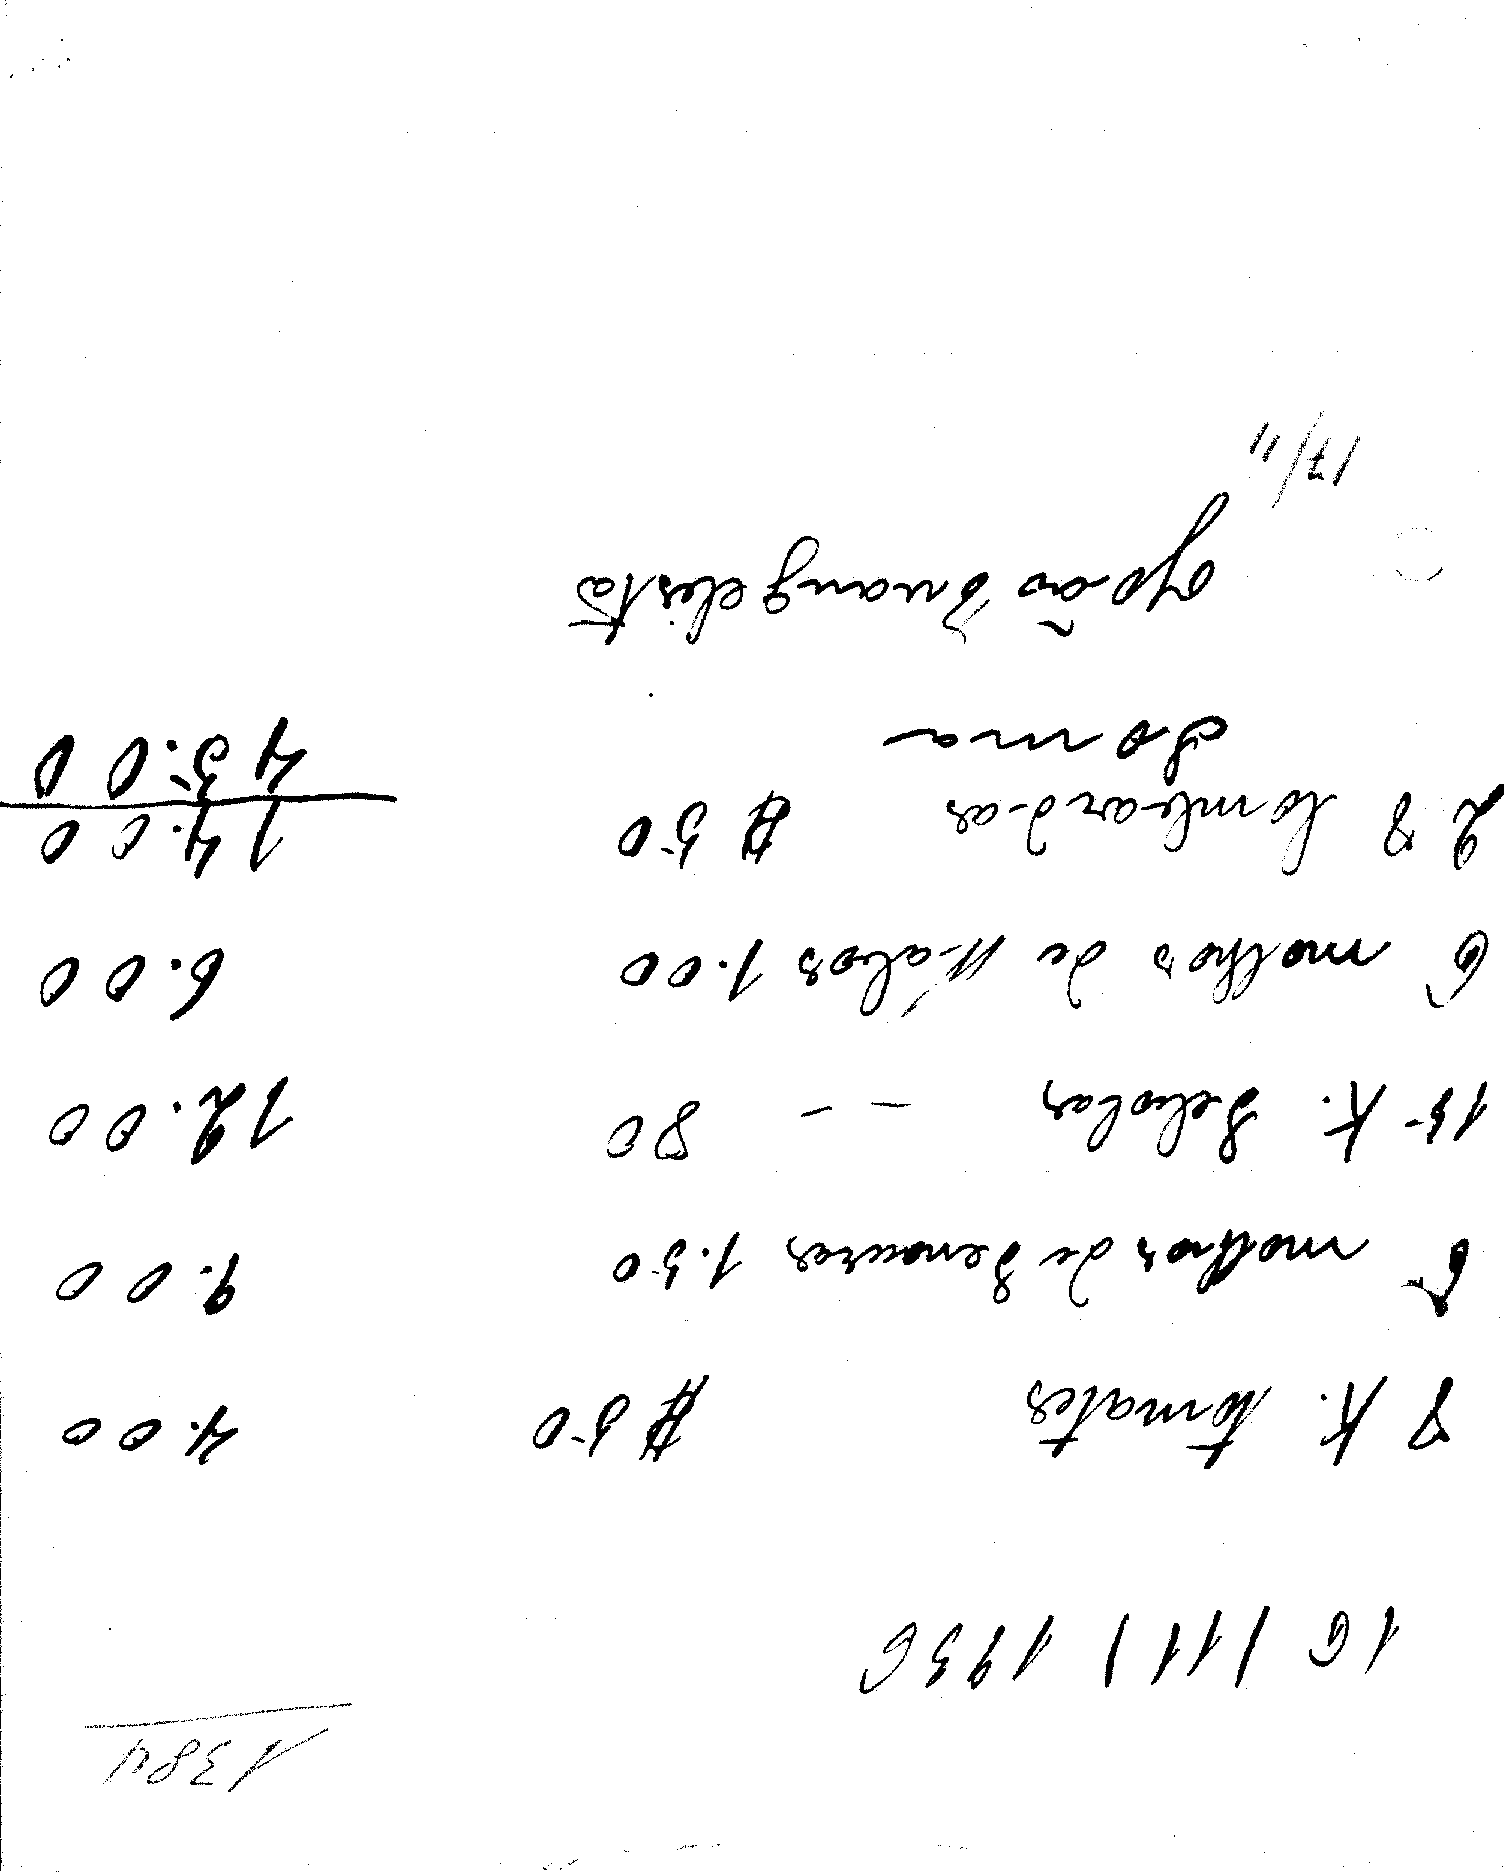 1384
16 / 11 / 1936
8 K. tomates $50 4.00
6 molhos de Senouras 1.50 9.00
15 K. Sebolas - - 80 12.00
6 molhos de Nabos 1.00 6.00
28 lombardas $50 14.00
Soma 45.00
João Evangelista
17/11